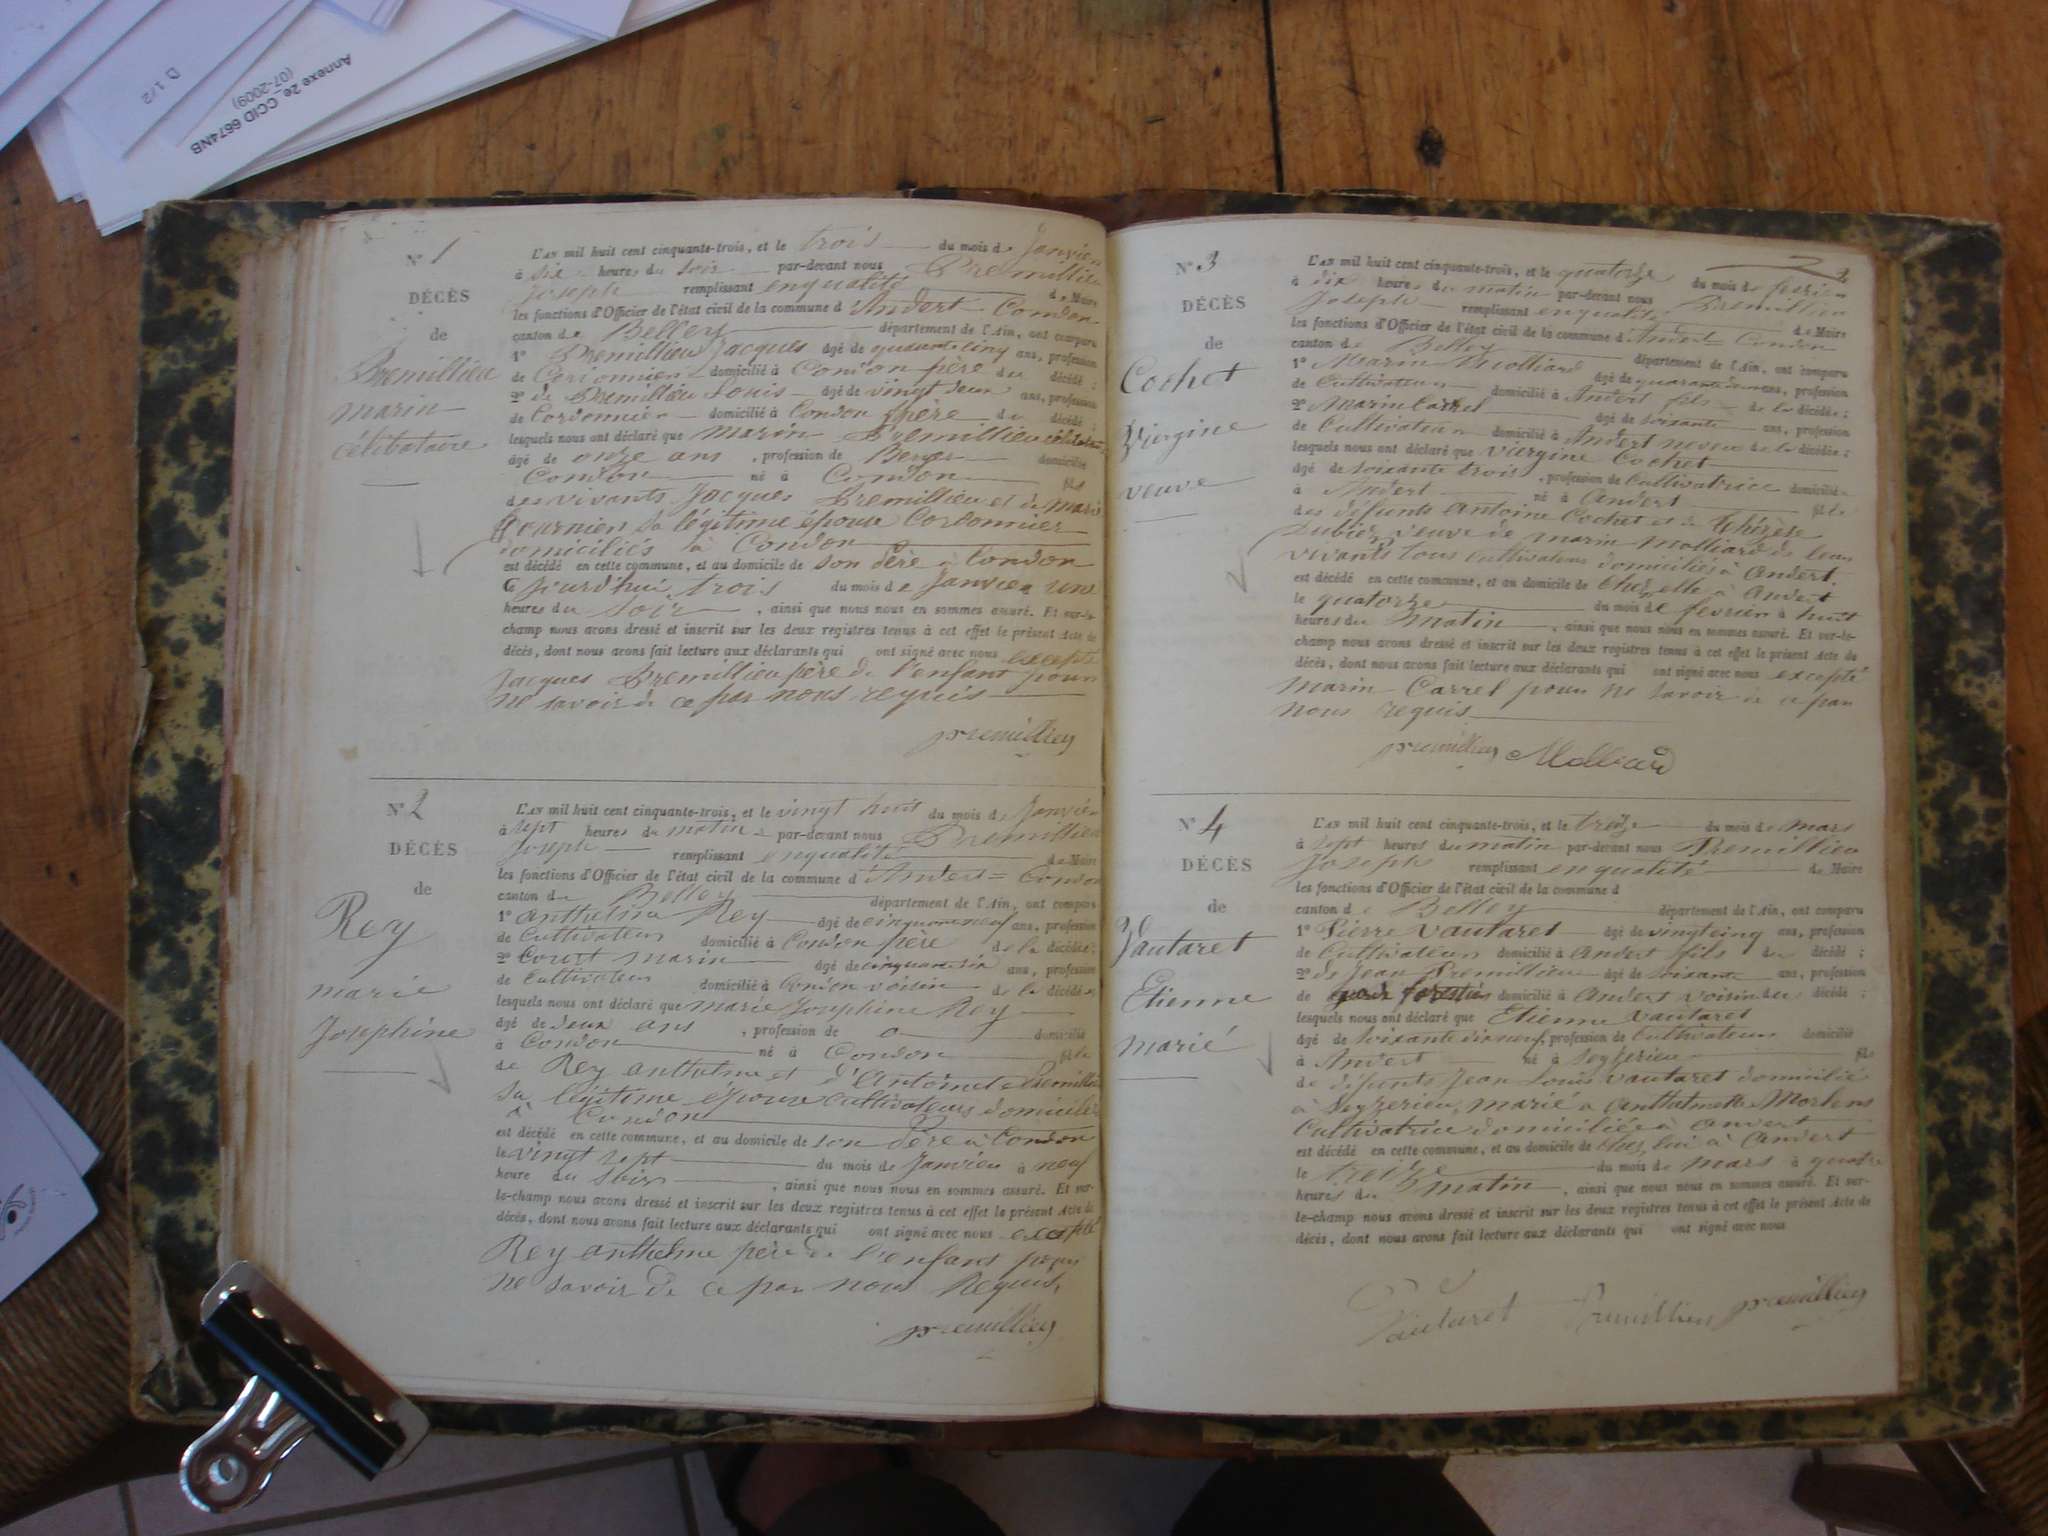 Annexe 2e CCID 6674NB
(07-2009)
D 1/2
N° 1
DÉCÈS
de
Premillieu
marin
célibataire
L'AN mil huit cent cinquante-trois, et le trois du mois de Janvier
à six heures du soir par-devant nous Premillieu
Joseph remplissant en qualité de Maire
les fonctions d'Officier de l'état civil de la commune d'Andert-Condon
canton de Belley département de l'Ain, ont comparu
1° Premillieu Jacques âgé de quarante cinq ans, profession
de Cordonnier domicilié à Condon père du décédé ;
2° de Premillieu Louis âgé de vingt deux ans, profession
de Cordonnier domicilié à Condon frère du décédé ;
lesquels nous ont déclaré que marin Premillieu célibataire
âgé de onze ans, profession de Berger domicilié
Condon né à Condon fils
des vivants Jacques Premillieu et de marie
fournier sa légitime épouse Cordonnier
domiciliés à Condon
est décédé en cette commune, et au domicile de son père à Condon
ce jourd'hui trois du mois de Janvier une
heures du soir, ainsi que nous nous en sommes assuré. Et sur-le-
champ nous avons dressé et inscrit sur les deux registres tenus à cet effet le présent Acte de
décès, dont nous avons fait lecture aux déclarants qui ont signé avec nous excepté
Jacques Premillieu père de l'enfant pour
ne savoir de ce par nous requis
premillieu
N° 2
DÉCÈS
de
Rey
marie
Josephine
L'AN mil huit cent cinquante-trois, et le vingt huit du mois de Janvier
à sept heures du matin par-devant nous Premillieu
Joseph remplissant en qualité de Maire
les fonctions d'Officier de l'état civil de la commune d'Andert-Condon
canton de Belley département de l'Ain, ont comparu
1° anthelme Rey âgé de cinquante neuf ans, profession
de Cultivateur domicilié à Condon père de la décédée ;
2° Court marin âgé de cinquante six ans, profession
de Cultivateur domicilié à Condon voisin de la décédée
lesquels nous ont déclaré que marie Josephine Rey
âgé de deux ans, profession de domicilié
à Condon né à Condon fille
de Rey anthelme et d'Antoinette Premillieu
sa légitime épouse cultivateurs domiciliés
à Condon
est décédé en cette commune, et au domicile de son père à Condon
le vingt sept du mois de Janvier à neuf
heure du soir, ainsi que nous nous en sommes assuré. Et sur-
le-champ nous avons dressé et inscrit sur les deux registres tenus à cet effet le présent Acte de
décès, dont nous avons fait lecture aux déclarants qui ont signé avec nous excepté
Rey anthelme père de l'enfant pour
ne savoir de ce par nous Requis,
premillieu
2
N° 3
DÉCÈS
de
Cochet
Virgine
veuve
L'AN mil huit cent cinquante-trois, et le quatorze du mois de fevrier
à dix heures du matin par-devant nous Premillieu
Joseph remplissant en qualité de Maire
les fonctions d'Officier de l'état civil de la commune d'Andert Condon
canton de Belley département de l'Ain, ont comparu
1° Marin Molliard âgé de quarante deux ans, profession
de Cultivateur domicilié à Andert fils de la décédée ;
2° Marin Carrel âgé de soixante ans, profession
de Cultivateur domicilié à Andert neveu de la décédée ;
lesquels nous ont déclaré que Virgine Cochet
âgé de soixante trois, profession de Cultivatrice domiciliée
à Andert né à Andert fille
des défunts Antoine Cochet et de Thérèse
Dubiez veuve de marin Molliard de leur
vivants tous cultivateurs domiciliés à Andert.
est décédé en cette commune, et au domicile de chez elle à Andert
le quatorze du mois de février à huit
heures du matin, ainsi que nous nous en sommes assuré. Et sur-le-
champ nous avons dressé et inscrit sur les deux registres tenus à cet effet le présent Acte de
décès, dont nous avons fait lecture aux déclarants qui ont signé avec nous excepté
Marin Carrel pour ne savoir de ce par
nous requis
premillieu Molliard
N° 4
DÉCÈS
de
Vautaret
Etienne
marié
L'AN mil huit cent cinquante-trois, et le treize du mois de mars
à sept heures du matin par-devant nous Premillieu
Joseph remplissant en qualité de Maire
les fonctions d'Officier de l'état civil de la commune d
canton de Belley département de l'Ain, ont comparu
1° Pierre Vautaret âgé de vingt cinq ans, profession
de Cultivateur domicilié à Andert fils du décédé ;
2° de Jean Premillieu âgé de soixante ans, profession
de garde forestier domicilié à Andert voisin du décédé ;
lesquels nous ont déclaré que Etienne Vautaret
âgé de soixante dix neuf, profession de Cultivateur domicilié
à Andert né à Seyzerieu fils
de défunts Jean Louis Vautaret domicilié
à Seyzerieu, marié à Anthelmette
Cultivatrice domiciliée à Andert
est décédé en cette commune, et au domicile de chez lui à Andert
le treize du mois de mars à quatre
heures du matin, ainsi que nous nous en sommes assuré. Et sur-
le-champ nous avons dressé et inscrit sur les deux registres tenus à cet effet le présent Acte de
décès, dont nous avons fait lecture aux déclarants qui ont signé avec nous
Vautaret Premillieu premillieu